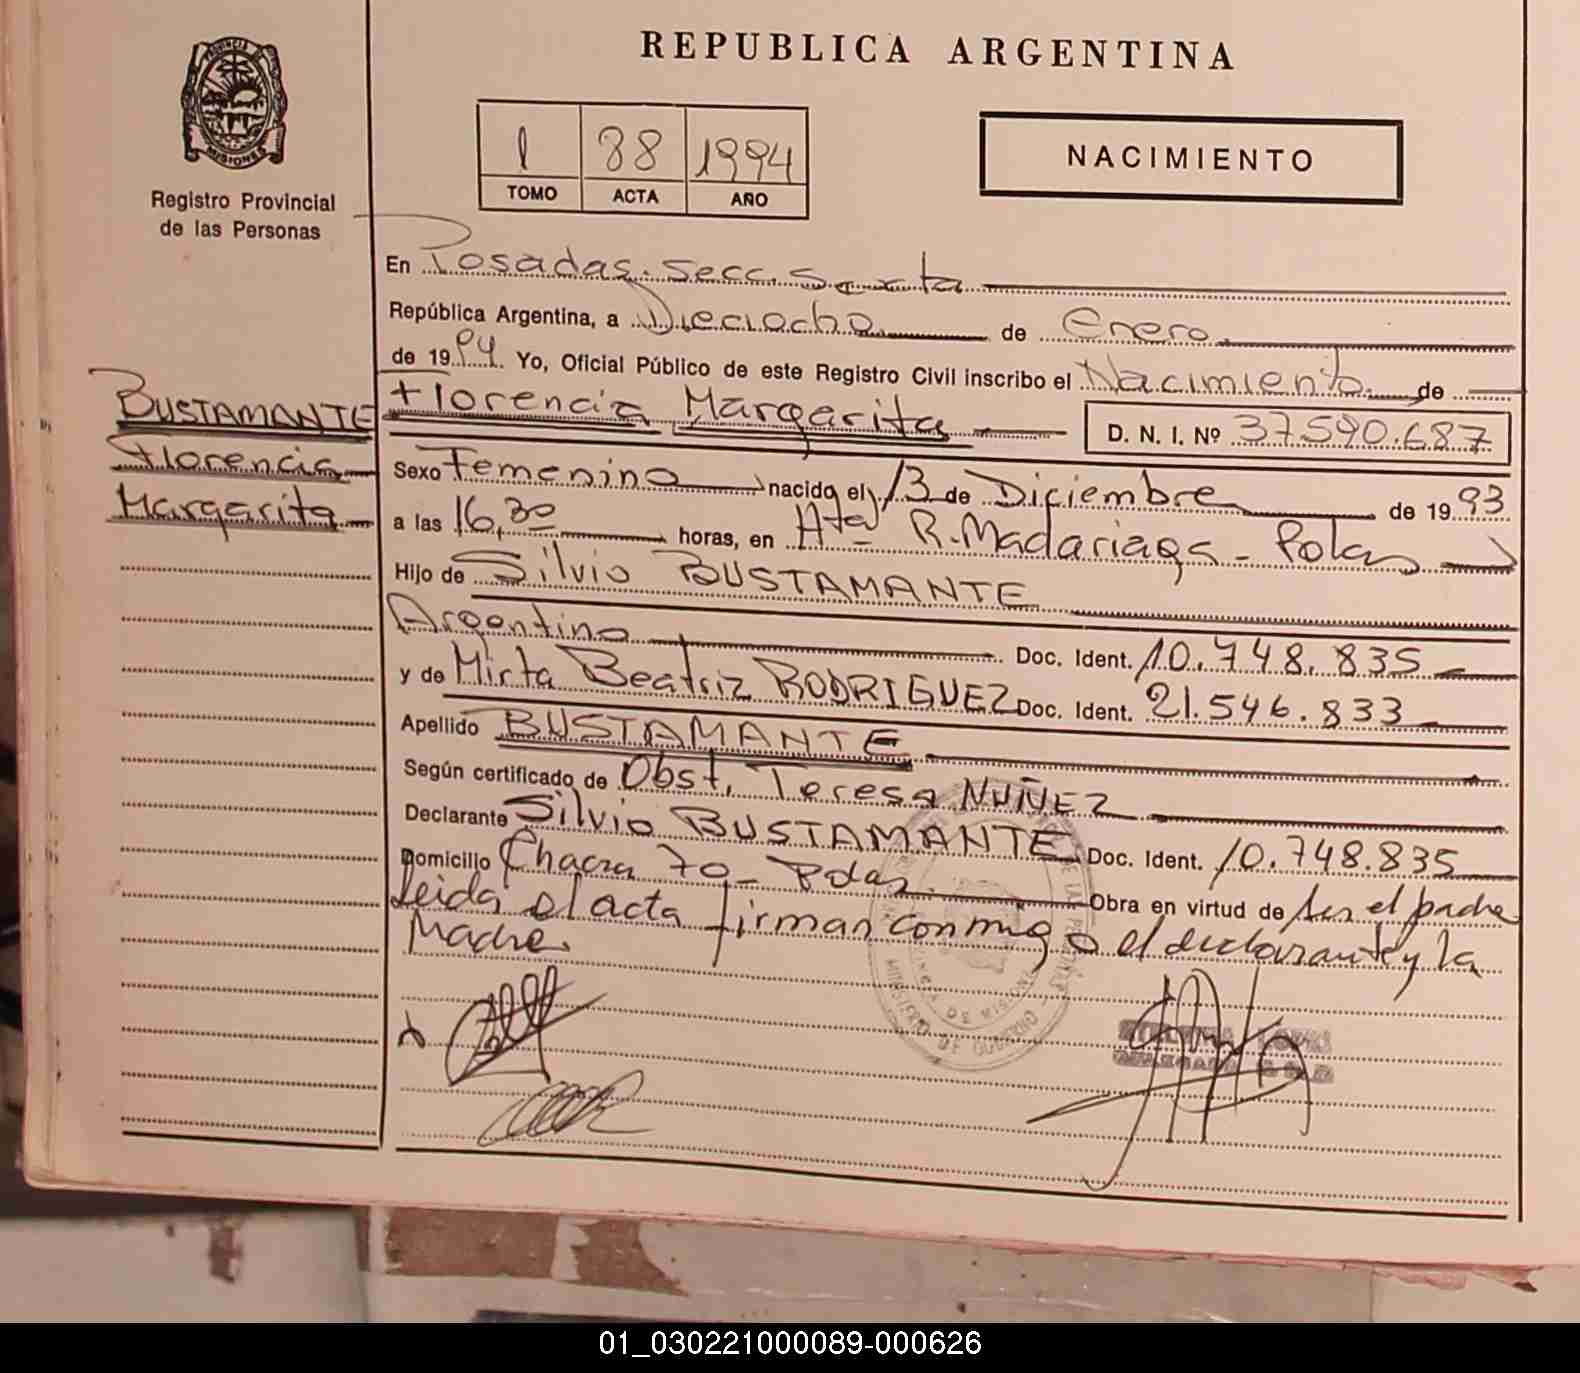 REPUBLICA ARGENTINA
PROVINCIA DE
MISIONES
Registro Provincial
de las Personas
1 88 1994
TOMO ACTA AÑO
NACIMIENTO
En Posadas. Secc. Sexta
República Argentina, a Dieciocho de Enero
de 1994. Yo, Oficial Público de este Registro Civil inscribo el Nacimiento de
Florencia Margarita D. N. I. Nº 37.590.687
BUSTAMANTE
Florencia
Margarita
Sexo Femenino nacido el 13 de Diciembre de 1993
a las 16,30 horas, en Htal R. Madariaga - Pdas
Hijo de Silvio BUSTAMANTE
Argentino Doc. Ident. 10.748.835
y de Mirta Beatriz RODRIGUEZ Doc. Ident. 21.546.833
Apellido BUSTAMANTE
Según certificado de Obst. Teresa NUÑEZ
Declarante Silvio BUSTAMANTE Doc. Ident. 10.748.835
Domicilio Chacra 70 - Pdas. Obra en virtud de ser el padre
Leida el acta firman conmigo el declarante y la
Madre.
MINISTERIO DE GOBIERNO
PROVINCIA DE MISIONES
01_030221000089-000626